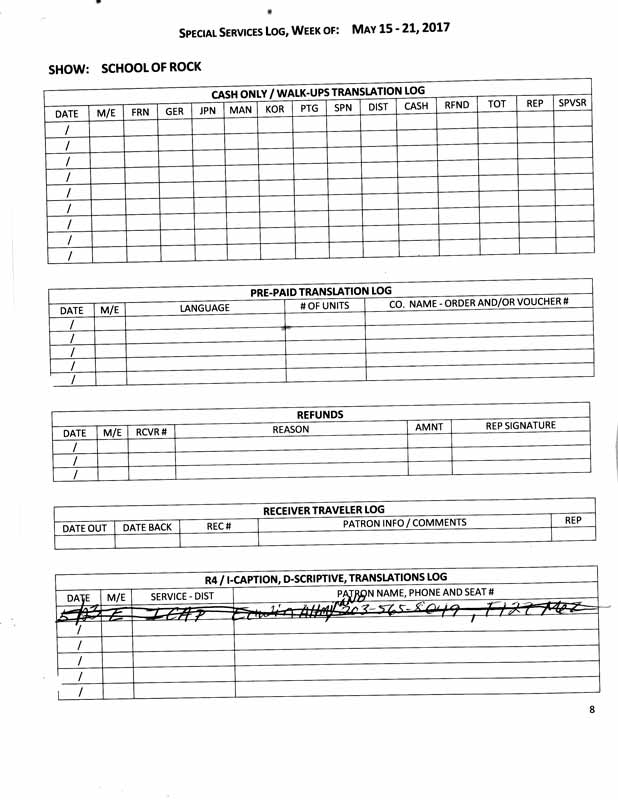 SPECIAL SERVICES LOG, WEEK OF: MAY 15 - 21, 2017
SHOW: SCHOOL OF ROCK
CASH ONLY / WALK-UPS TRANSLATION LOG
DATE M/E FRN GER JPN MAN KOR PTG SPN DIST CASH RFND TOT REP SPVSR
/
/
/
/
/
/
/
/
/
PRE-PAID TRANSLATION LOG
DATE M/E LANGUAGE # OF UNITS CO. NAME - ORDER AND/OR VOUCHER #
/
/
/
/
/
REFUNDS
DATE M/E RCVR # REASON AMNT REP SIGNATURE
/
/
/
RECEIVER TRAVELER LOG
DATE OUT DATE BACK REC # PATRON INFO / COMMENTS REP
R4 / I-CAPTION, D-SCRIPTIVE, TRANSLATIONS LOG
DATE M/E SERVICE - DIST PATRON NAME, PHONE AND SEAT #
E ICAP 203-565-8049, F127 Mez
/
/
/
/
/
8